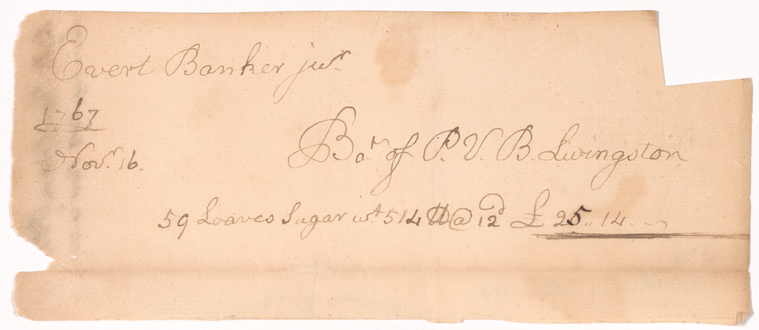 Evert Banker junr
1767
Novr. 16.
Bot of P. V. B. Livingston
59 Loaves Sugar wt 514 ℔ @ 12d £ 25 .. 14 .. ~